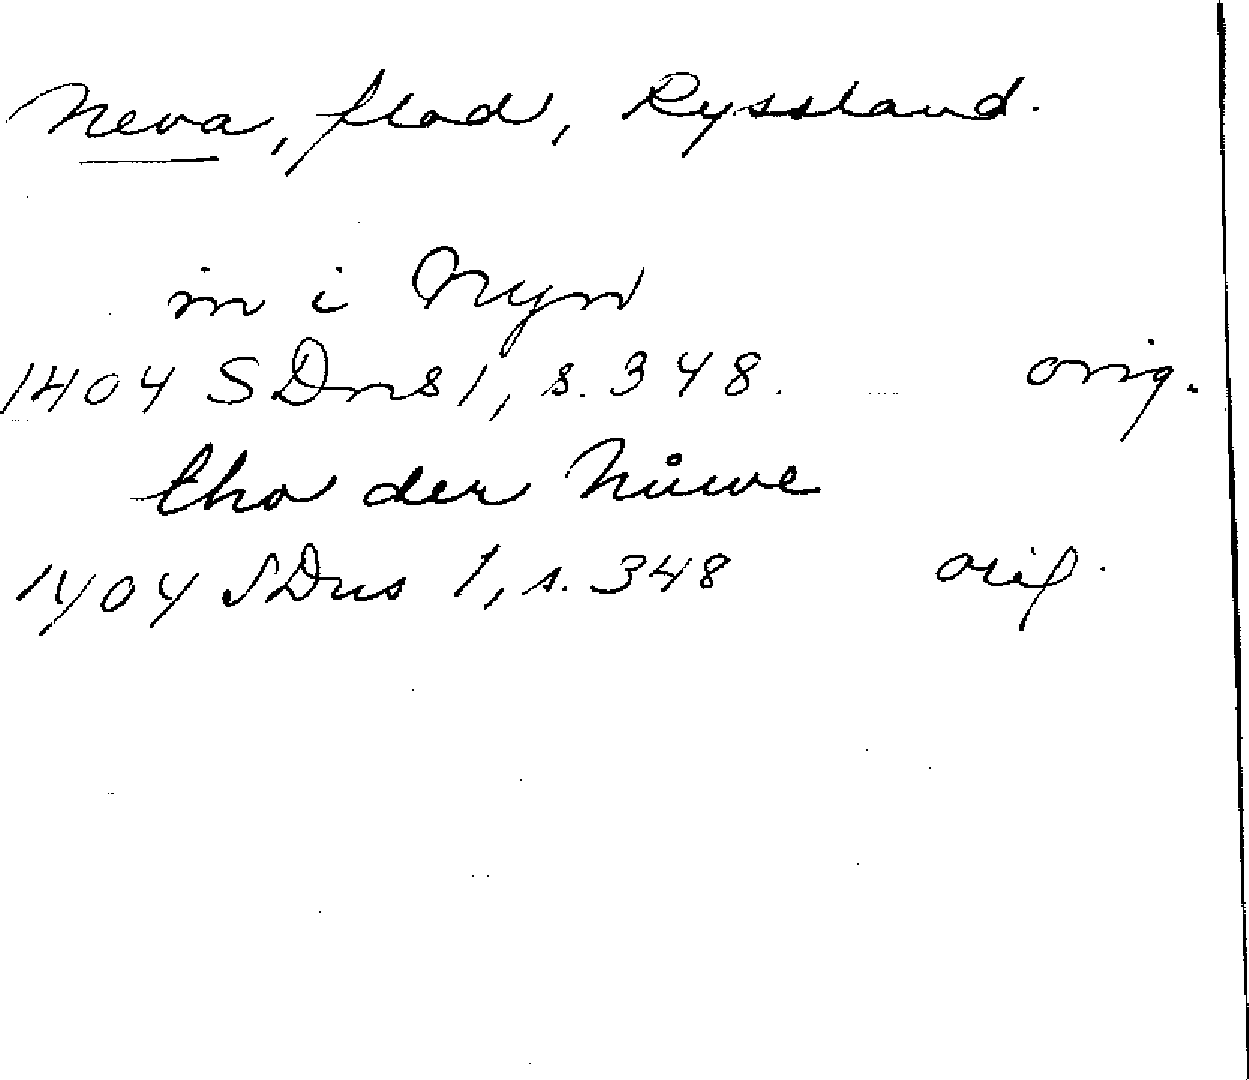 Neva, flod, Ryssland.
in i Nyn
1404 SDns1, s. 348. orig.
tho der Nůwe
1404 SDns 1, s. 348 orig.